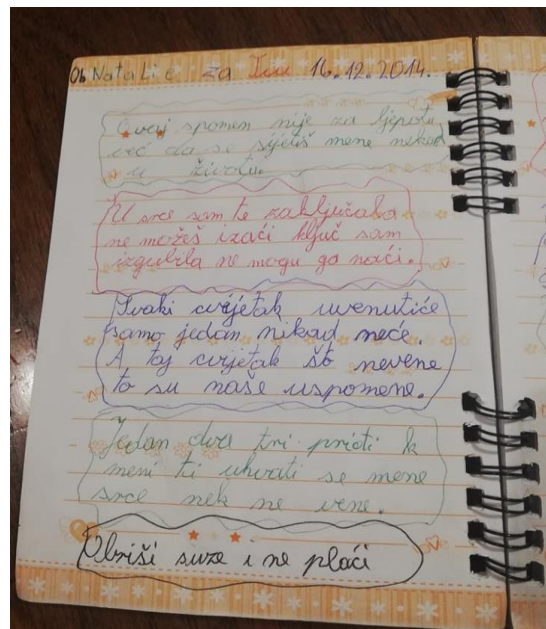 Ob Natalie za Inu 16.12.2014.
Ovaj spomen nije za ljepotu
već da se sjetiš mene nekad
u životu.
U srce sam te zaključala
ne možeš izaći ključ sam
izgubila ne mogu go naći.
Svaki cvijetak uvenutiće
samo jedan nikad neće.
A taj cvijetak št nevene
to su naše uspomene.
Jedan dva tri priđi k
meni ti uhvati se mene
srce nek ne vene.
Obriši suze i ne plači